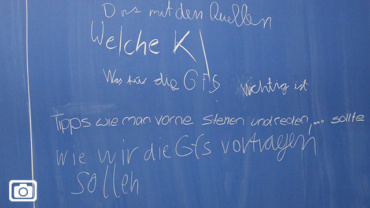 Das mit den Quellen
Welche KI
Was für die GFS wichtig ist
Tipps wie man vorne stehen und reden,... sollte
wie wir die GFS vortragen
sollen